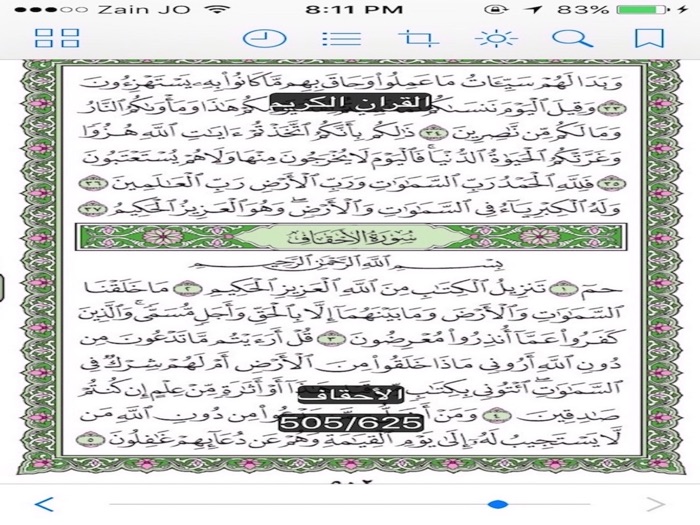 Zain JO 8:11 PM 83%
وَبَدَا لَهُمْ سَيِّـَٔاتُ مَا عَمِلُوا۟ وَحَاقَ بِهِم مَّا كَانُوا۟ بِهِۦ يَسْتَهْزِءُونَ
٣٣ وَقِيلَ ٱلْيَوْمَ هَٰذَا وَمَأْوَىٰكُمُ ٱلنَّارُ
القران الكريم
وَمَا لَكُم مِّن نَّٰصِرِينَ ٣٤ ذَٰلِكُم بِأَنَّكُمُ ٱتَّخَذْتُمْ ءَايَٰتِ ٱللَّهِ هُزُوًا
وَغَرَّتْكُمُ ٱلْحَيَوٰةُ ٱلدُّنْيَا ۚ فَٱلْيَوْمَ لَا يُخْرَجُونَ مِنْهَا وَلَا هُمْ يُسْتَعْتَبُونَ
٣٥ فَلِلَّهِ ٱلْحَمْدُ رَبِّ ٱلسَّمَٰوَٰتِ وَرَبِّ ٱلْأَرْضِ رَبِّ ٱلْعَٰلَمِينَ ٣٦
وَلَهُ ٱلْكِبْرِيَآءُ فِى ٱلسَّمَٰوَٰتِ وَٱلْأَرْضِ ۖ وَهُوَ ٱلْعَزِيزُ ٱلْحَكِيمُ ٣٧
سُورَةُ الْأَحْقَافِ
بِسْمِ ٱللَّهِ ٱلرَّحْمَٰنِ ٱلرَّحِيمِ
حمٓ ١ تَنزِيلُ ٱلْكِتَٰبِ مِنَ ٱللَّهِ ٱلْعَزِيزِ ٱلْحَكِيمِ ٢ مَا خَلَقْنَا
ٱلسَّمَٰوَٰتِ وَٱلْأَرْضَ وَمَا بَيْنَهُمَآ إِلَّا بِٱلْحَقِّ وَأَجَلٍ مُّسَمًّى ۚ وَٱلَّذِينَ
كَفَرُوا۟ عَمَّآ أُنذِرُوا۟ مُعْرِضُونَ ٣ قُلْ أَرَءَيْتُم مَّا تَدْعُونَ مِن
دُونِ ٱللَّهِ أَرُونِى مَاذَا خَلَقُوا۟ مِنَ ٱلْأَرْضِ أَمْ لَهُمْ شِرْكٌ فِى
ٱلسَّمَٰوَٰتِ ۖ ٱئْتُونِى بِكِتَٰبٍ أَوْ أَثَٰرَةٍ مِّنْ عِلْمٍ إِن كُنتُمْ
الأحقاف
صَٰدِقِينَ ٤ وَمَنْ مِن دُونِ ٱللَّهِ مَن
505/625
لَّا يَسْتَجِيبُ لَهُۥٓ إِلَىٰ يَوْمِ ٱلْقِيَٰمَةِ وَهُمْ عَن دُعَآئِهِمْ غَٰفِلُونَ ٥